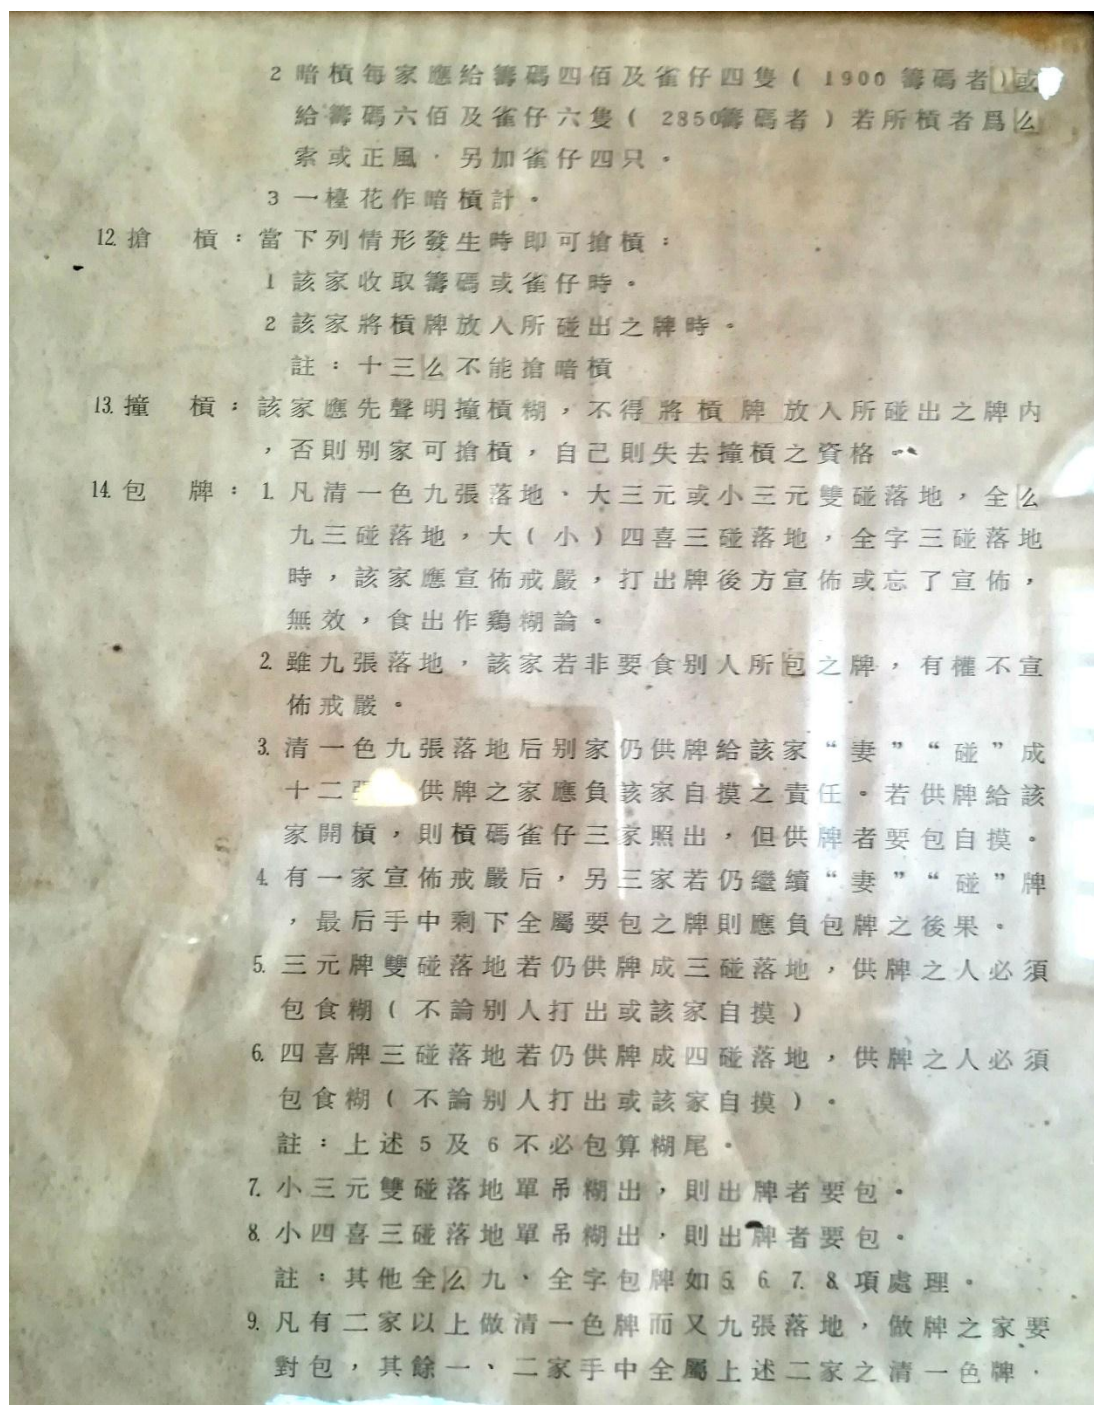 2 暗槓每家應給籌碼四佰及雀仔四隻( 1900 籌碼者)或
給籌碼六佰及雀仔六隻( 2850籌碼者)若所槓者爲么
索或正風，另加雀仔四只。
3 一檯花作暗槓計。
12.搶 槓：當下列情形發生時即可搶槓：
1 該家收取籌碼或雀仔時。
2 該家將槓牌放入所碰出之牌時。
註：十三么不能搶暗槓
13.撞 槓：該家應先聲明撞槓糊，不得將槓牌放入所碰出之牌内
，否則别家可搶槓，自己則失去撞槓之資格。
14.包 牌：1.凡清一色九張落地、大三元或小三元雙碰落地，全么
九三碰落地，大(小)四喜三碰落地，全字三碰落地
時，該家應宣佈戒嚴，打出牌後方宣佈或忘了宣佈，
無效，食出作鷄糊論。
2.雖九張落地，該家若非要食别人所包之牌，有權不宣
佈戒嚴。
3.清一色九張落地后别家仍供牌給該家“妻”“碰”成
十二 供牌之家應負該家自摸之責任。若供牌給該
家開槓，則槓碼雀仔三家照出，但供牌者要包自摸。
4.有一家宣佈戒嚴后，另三家若仍繼續“妻”“碰”牌
，最后手中剩下全屬要包之牌則應負包牌之後果。
5.三元牌雙碰落地若仍供牌成三碰落地，供牌之人必須
包食糊(不論别人打出或該家自摸)
6.四喜牌三碰落地若仍供牌成四碰落地，供牌之人必須
包食糊(不論别人打出或該家自摸)。
註：上述5及6不必包算糊尾。
7.小三元雙碰落地單吊糊出，則出牌者要包。
8.小四喜三碰落地單吊糊出，則出牌者要包。
註：其他全么九、全字包牌如5.6.7.8.項處理。
9.凡有二家以上做清一色牌而又九張落地，做牌之家要
對包，其餘一、二家手中全屬上述二家之清一色牌，